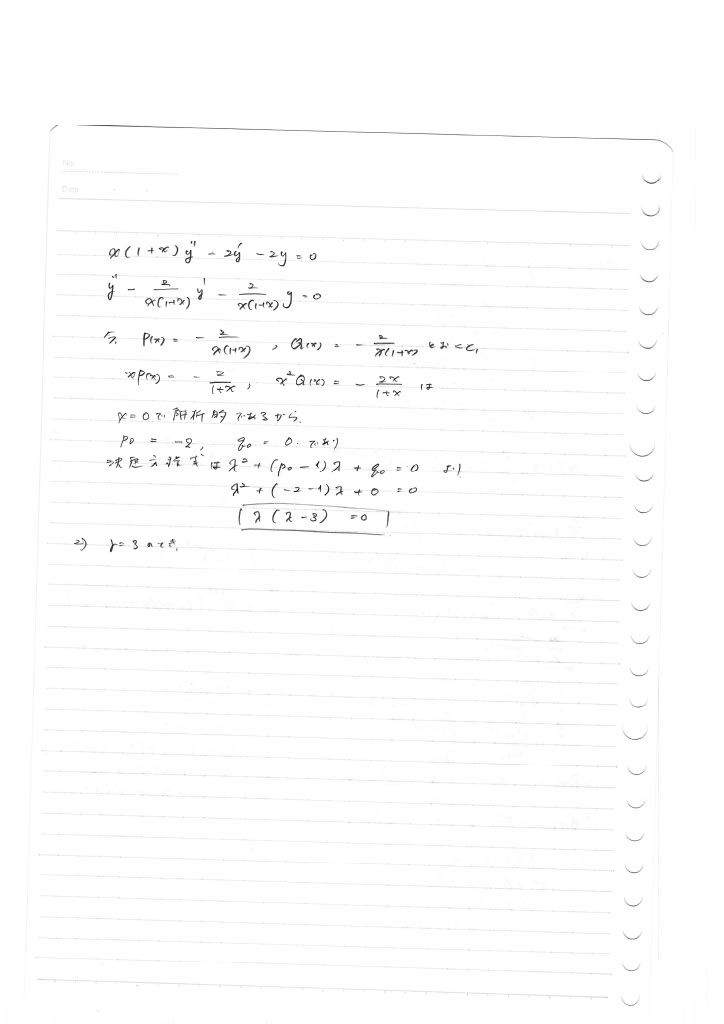 No.
Date
x(1+x)y'' - 2y' - 2y = 0
y'' - 2/x(1+x) y' - 2/x(1+x) y = 0
今、P(x) = - 2/x(1+x) , Q(x) = - 2/x(1+x) とおくと、
xP(x) = - 2/1+x , x²Q(x) = - 2x/1+x は
x=0で解析的であるから、
p₀ = -2, q₀ = 0. であり
決定方程式は λ² + (p₀ - 1)λ + q₀ = 0 より
λ² + (-2-1)λ + 0 = 0
λ(λ-3) = 0
2) λ=3のとき、